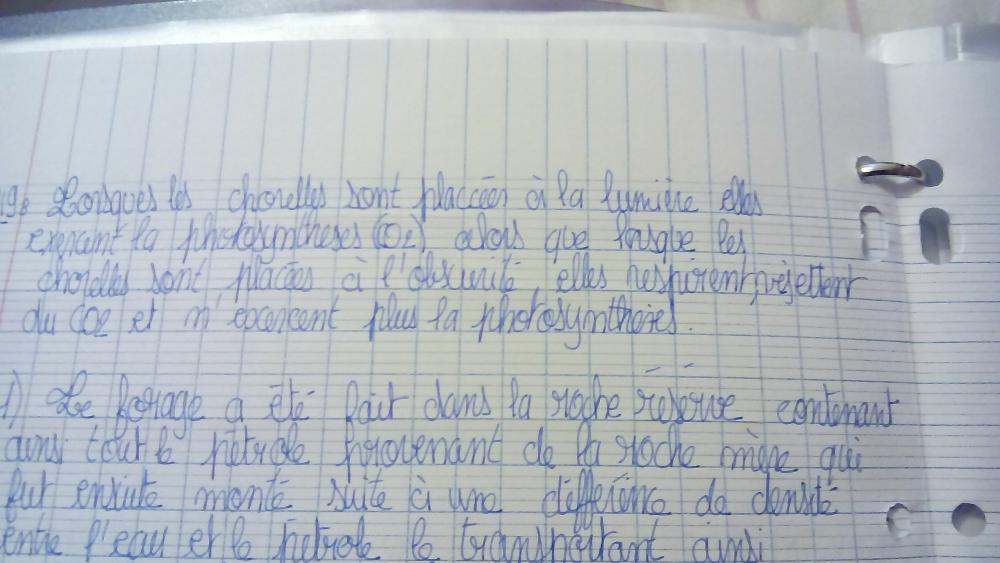 19. Lorsques les chorelles sont placcées à la lumière elles
exercent la photosynthèses (O2) alors que lorsque les
chorelles sont placées à l'obscurité, elles respirent, rejettent
du CO2 et n'excercent plus la photosynthèses.
1) Le forage a été fait dans la roche réserve contenant
ainsi tout le pétrole provenant de la roche mère qui
fut ensuite monté suite à une différence de densité
entre l'eau et le pétrole le transportant ainsi